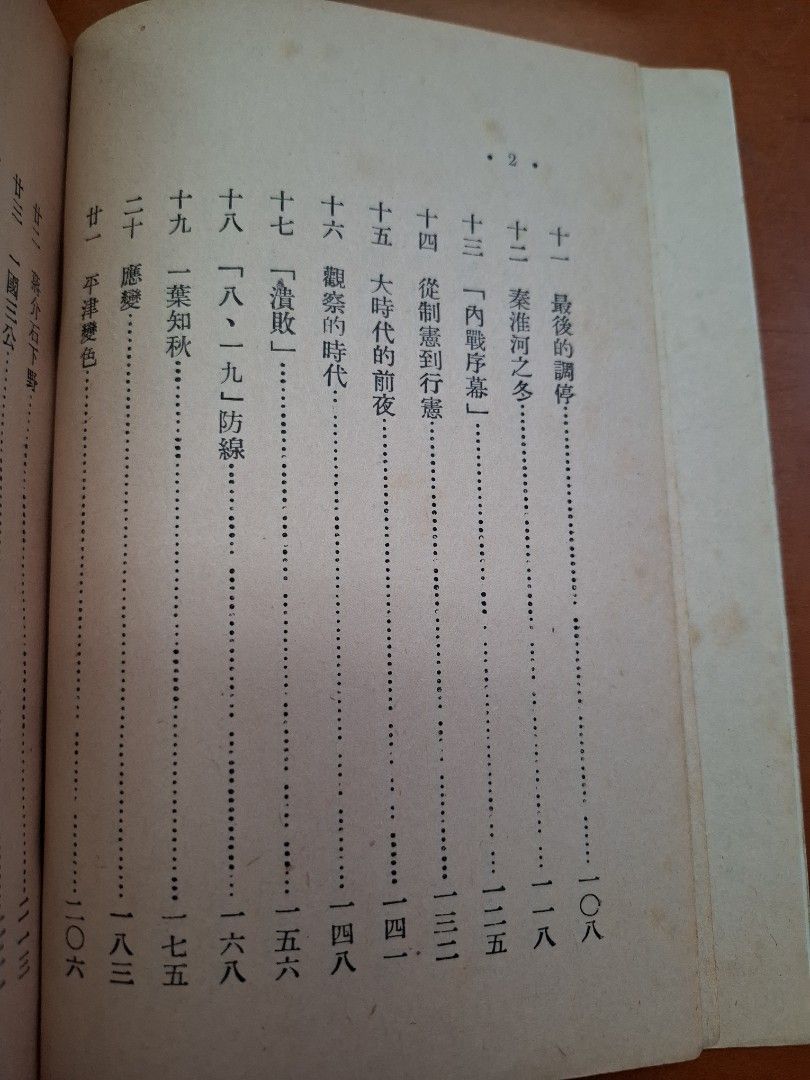 • 2 •
十一 最後的調停 一〇八
十二 秦淮河之冬 一一八
十三 「內戰序幕」 一二五
十四 從制憲到行憲 一三二
十五 大時代的前夜 一四一
十六 觀察的時代 一四八
十七 「潰敗」 一五六
十八 「八、一九」防線 一六八
十九 一葉知秋 一七五
二十 應變 一八三
廿一 平津變色 二〇六
廿二 蔣介石下野
廿三 一國三公